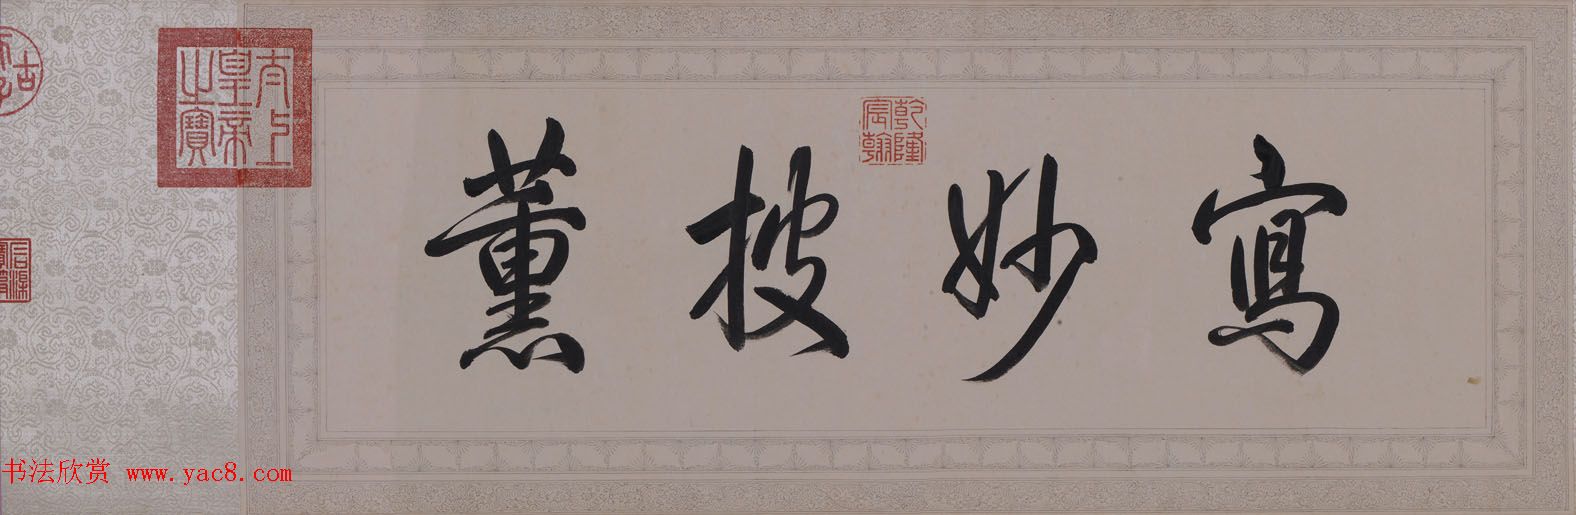 寫妙披薰
乾隆宸翰
太上皇帝之寶
古
书法欣赏 www.yac8.com